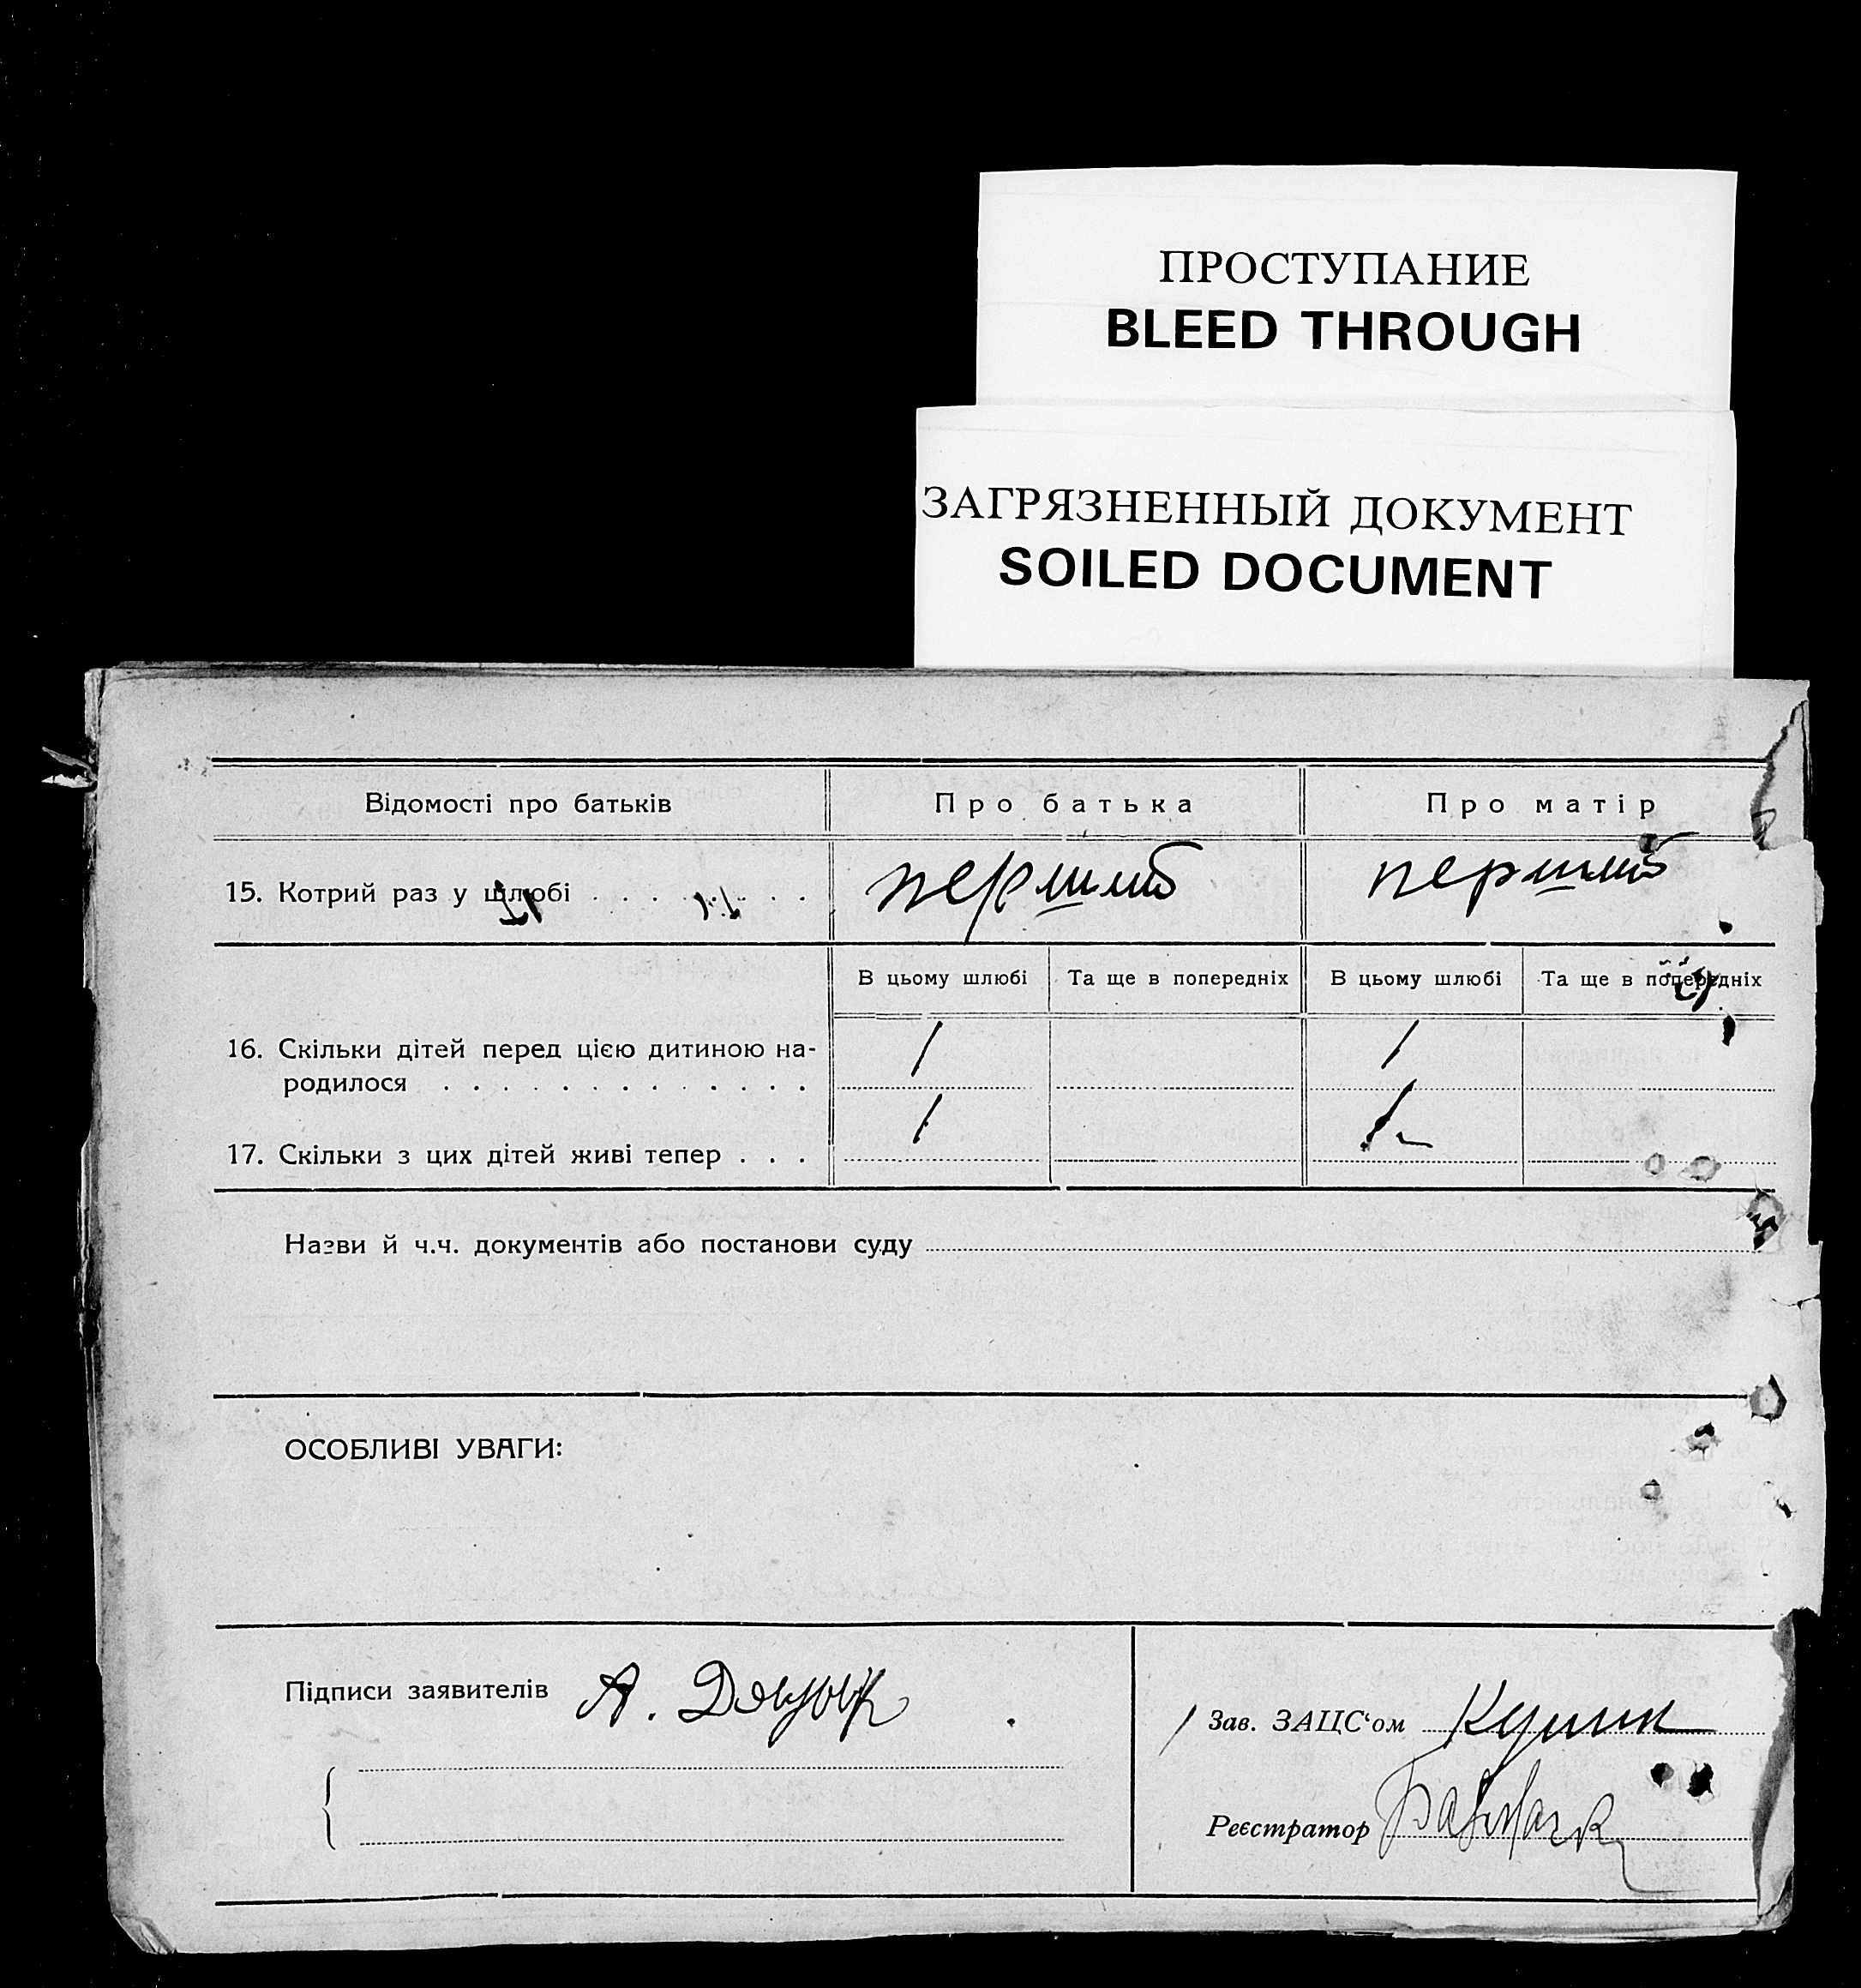 ПРОСТУПАНИЕ
BLEED THROUGH
ЗАГРЯЗНЕННЫЙ ДОКУМЕНТ
SOILED DOCUMENT
Відомості про батьків Про батька Про матір
15. Котрий раз у шлюбі . . . . . . . перший перший
В цьому шлюбі Та ще в попередніх В цьому шлюбі Та ще в попередніх
16. Скільки дітей перед цією дитиною на- 1 1
родилося . . . . . . . . . . . . .
17. Скільки з цих дітей живі тепер . . . 1 1
Назви й ч.ч. документів або постанови суду
ОСОБЛИВІ УВАГИ:
Підписи заявителів А.
Зав. ЗАЦС‘ом
Реєстратор